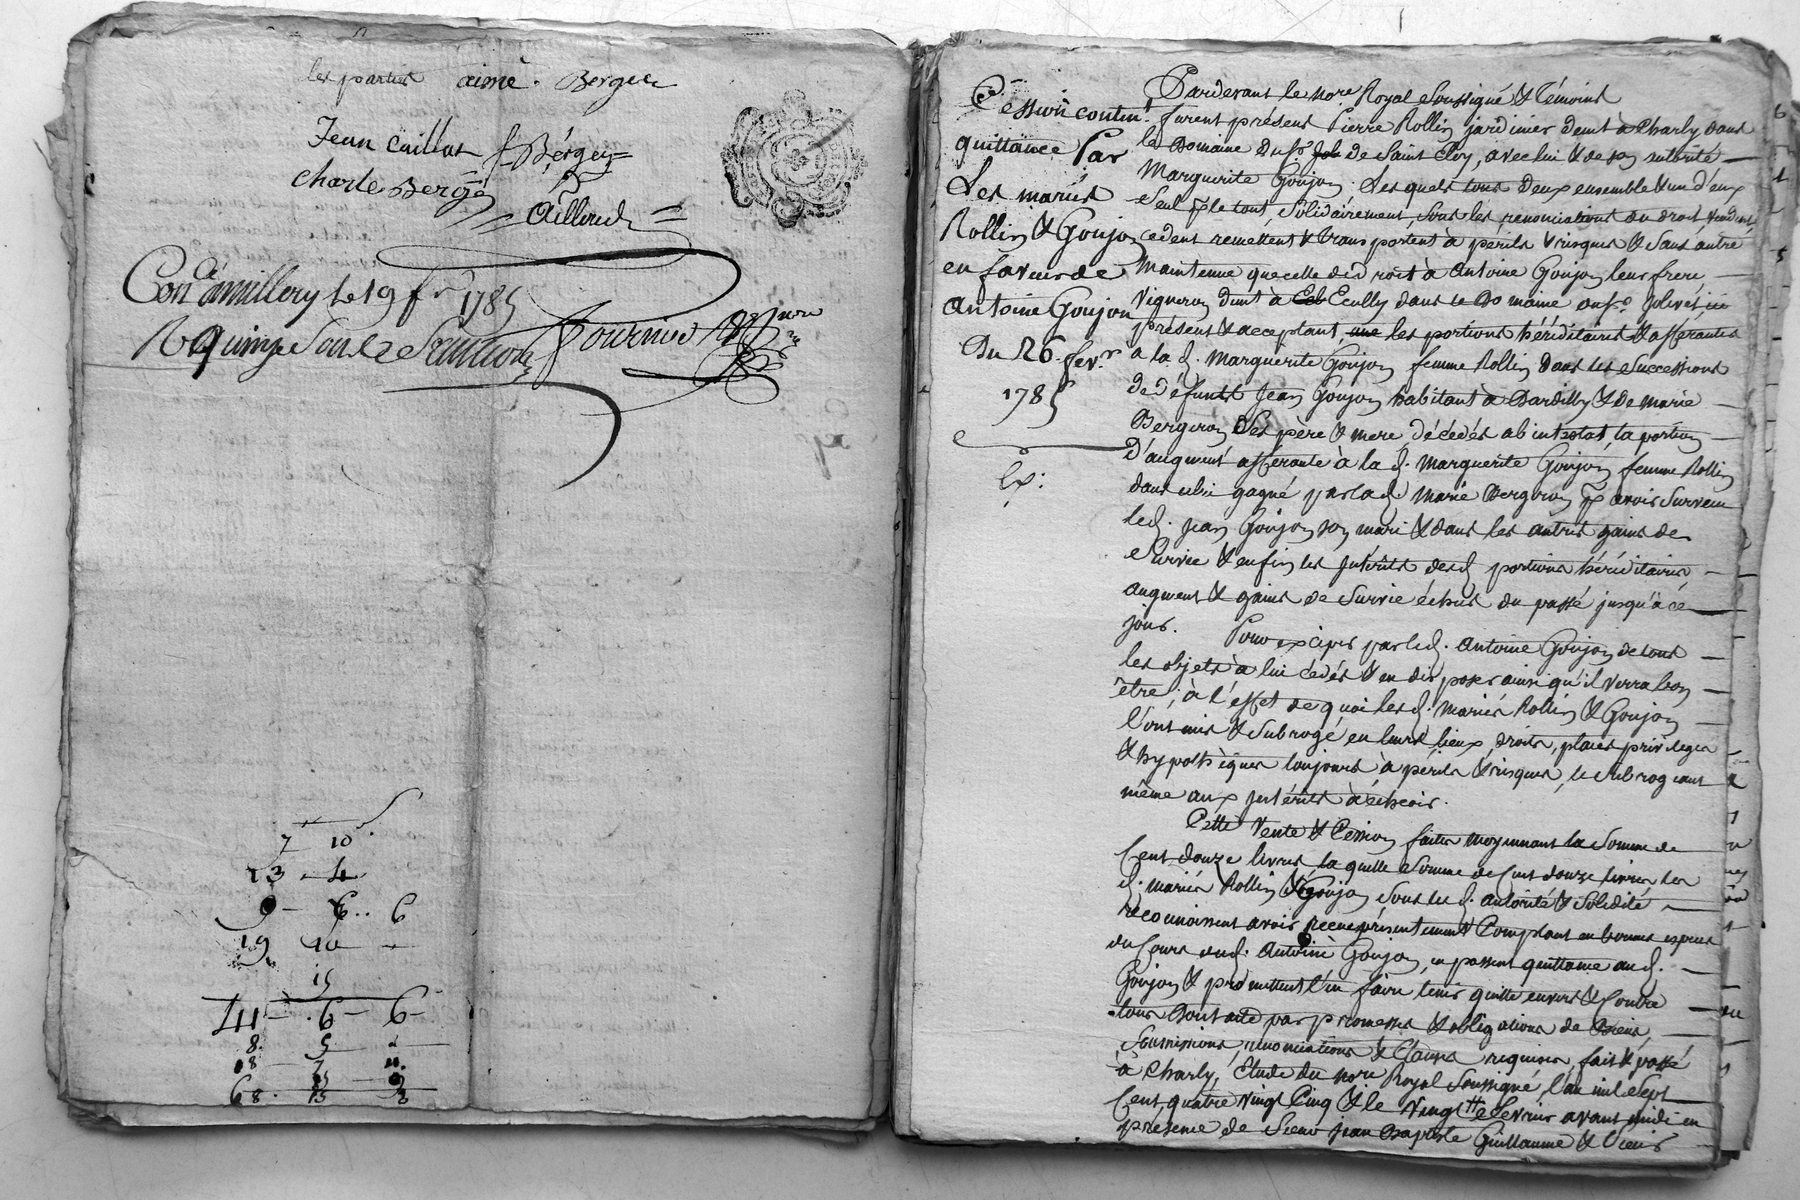 les parties aimé. Berger
Jean Caillot f. Berger
Charle Berger
Ailloud
Con. à millery le 19 fr 1785
R quinze sous
7 10
23 4
9 6 6
19 10
15
41 6 6
8 5
18 7
15
68 15
Cession content.
quittance Par
Les mariés
Rollin & Goujon
en faveur de
Antoine Goujon
Du 26 fevr.
1785
Ex:
Pardevant le nore. Royal Soussigné & Témoins
furent présens Pierre Rollin jardinier demt à Charly dans
le Domaine du Sr. de Saint Eloy, avec lui & de son autorité
Marguerite Goujon. Lesquels tous deux ensemble & un d'eux
seul pr le tout, Solidairement, sous les renonciations du droit, vendent
cedent remettent & transportent à périls & risques & sans autre
maintenue que celle de droit à Antoine Goujon leur frere
vigneron demt à Ecully dans le Domaine du Sr. jolivet, ici
présent & acceptant, les portions héréditaires & afférantes
a la d. Marguerite Goujon femme Rollin dans les Successions
de défunts Jean Goujon habitant à Dardilly & de marie
Bergeron Ses père & mere, décédés ab intestat, la portion
d'augment afférante à la d. Marguerite Goujon femme Rollin
dans celui gagné par lad. Marie Bergeron pr avoir Survecu
led. jean Goujon son mari & dans les autres gains de
Survie & enfin les jntérêts desd. portions héréditaires,
augment & gains de Survie échus du passé jusqu'à ce
jour. Pour exciper par led. Antoine Goujon de tous
les objets à lui cédés & en disposer ainsi qu'il verra bon
être, à l'effet de quoi lesd. Mariés Rollin & Goujon
l'ont mis & Subrogé en leurs lieux, droits, places privileges
& hypothèques toujours à périls & risques, le Subrogeant
même aux jntérêts à échoir.
Cette Vente & Cession faites moyennant la Somme de
Cent douze livres, la quelle Somme de Cent douze livres les
d. mariés Rollin & Goujon, sous led. autorité & Solidité,
reconnoissent avoir recue présentement Comptant en bonnes especes
du Cours dud. Antoine Goujon, en passent quittance aud.
Goujon & promettent l'en faire tenir quitte envers & Contre
tous Dont acte par promesses & obligations de Biens,
Soumissions, renonciations & Clauses requises, fait & passé
à Charly, étude du nore Royal Soussigné l'an mil Sept
Cent quatre vingt Cinq & le Vingt fevrier avant midi en
présence de Sieur jean Baptiste Guillaume & Sieur